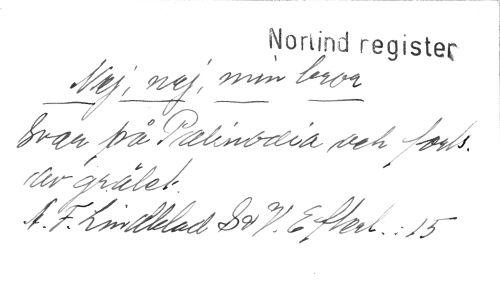 Norlind register
Nej, nej, min bror
Svar på Palinodia och forts.
av grälet.
A. F. Lindblad Sv V. Efterl. : 15